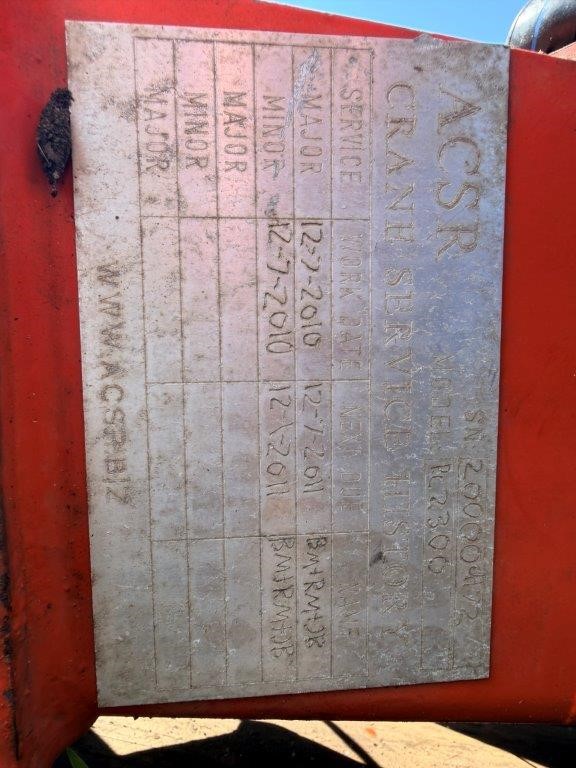 ACSR SN 20000473
MODEL PC2300
CRANE SERVICE HISTORY
SERVICE WORK DATE NEXT DUE NAME
MAJOR 12-7-2010 12-7-2011 BM+RM+JB
MINOR 12-7-2010 12-1-2011 BM+RM+JB
MAJOR
MINOR
MAJOR
WWW.ACSR.BIZ